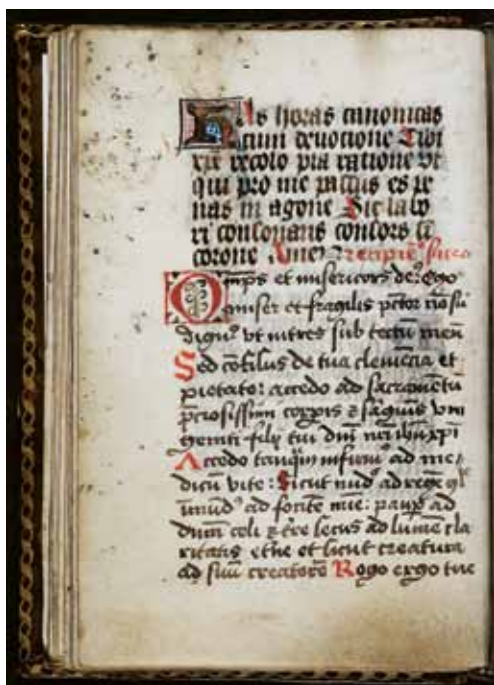 Has horas canonicas
cum devotione Tibi
xp̄e recolo pia ratione vt
qui pro me passus es pe
nas in agone Sic labo
ri consonans consors sī
corone Amen
Omps et misericors deꝰ ego
miser et fragilis pctor nō sū
dignꝰ vt intres sub tectū meū
Sed cōfisus de tua clemencia et
pietate: accedo ad sacramētū
p̄ciosissimi corpis ⁊ sāguīs vni
geniti filij tui dnī nr̄i ihū xpī
Accedo tanq̄m infirmꝰ ad me
dicū vite: Sicut nudꝰ ad regē gl̄
īmūdꝰ ad fontē mīe: paup̄ ad
dnm̄ celi ⁊ tr̄e secus ad lumē cla
ritatis et̄ne et sicut creatura
ad suū creatorē Rogo ergo tue